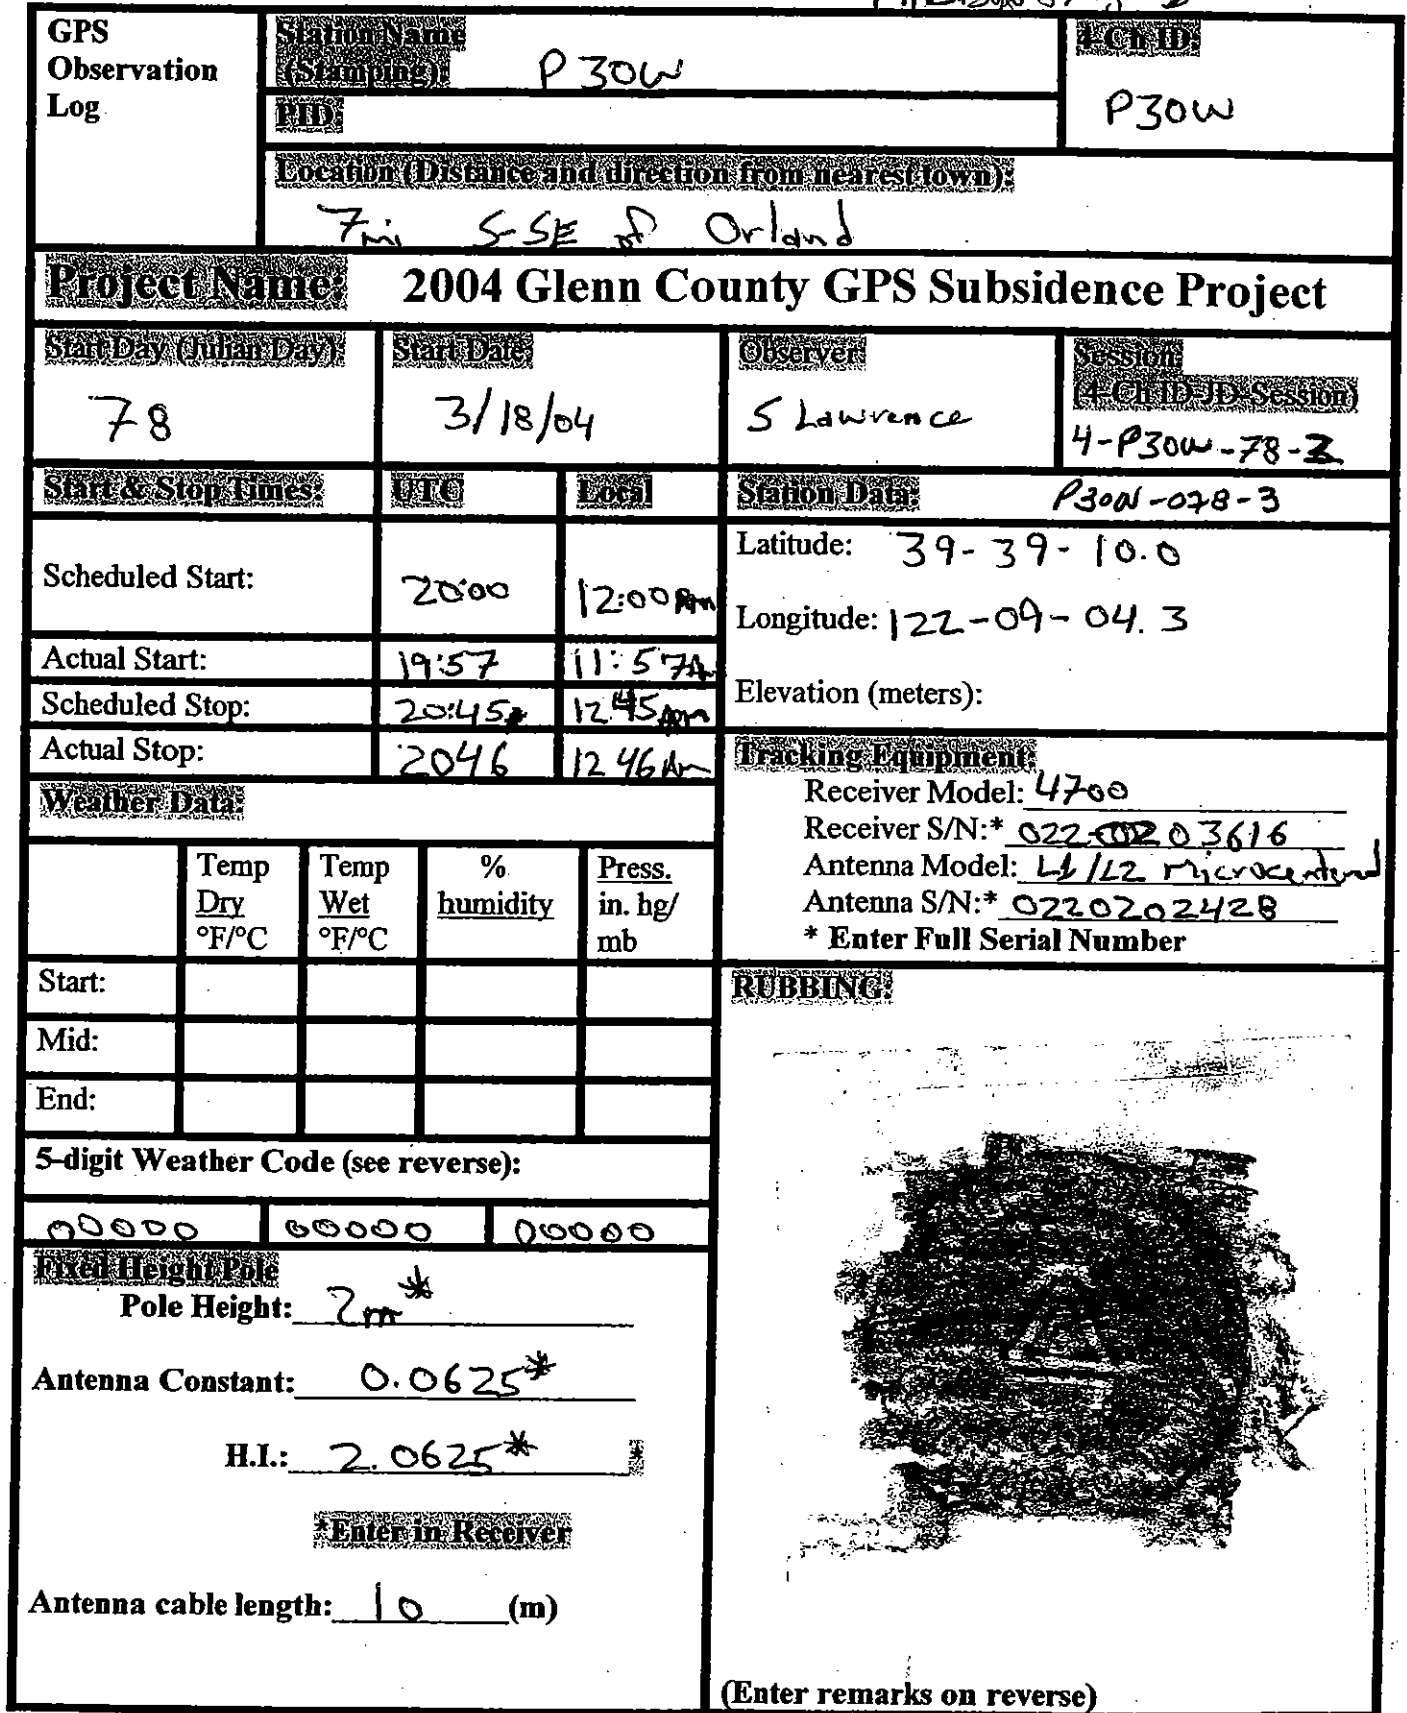 GPS Observation Log
Station Name (Stamping): P30W
4-Ch ID: P30W
PID:
Location (Distance and direction from nearest town):
7mi S-SE of Orland
Project Name: 2004 Glenn County GPS Subsidence Project
Start Day (Julian Day): 78
Start Date: 3/18/04
Observer: S Lawrence
Session (4-Ch ID-JD-Session)
4-P30W-78-3
Start & Stop Times: UTC Local
Station Data: P30W-078-3
Scheduled Start: 20:00 12:00 pm
Actual Start: 19:57 11:57A
Scheduled Stop: 20:45 12:45 pm
Actual Stop: 2046 12 46
Latitude: 39-39-10.0
Longitude: 122-09-04.3
Elevation (meters):
Tracking Equipment:
Receiver Model: 4700
Receiver S/N:* 022 03616
Antenna Model: L1/L2 Microcentered
Antenna S/N:* 0220202428
* Enter Full Serial Number
Weather Data:
Temp Dry °F/°C
Temp Wet °F/°C
% humidity
Press. in. hg/ mb
Start:
Mid:
End:
5-digit Weather Code (see reverse):
00000 00000 00000
Fixed Height Pole
Pole Height: 2m*
Antenna Constant: 0.0625*
H.I.: 2.0625* *
*Enter in Receiver
Antenna cable length: 10 (m)
RUBBING:
(Enter remarks on reverse)